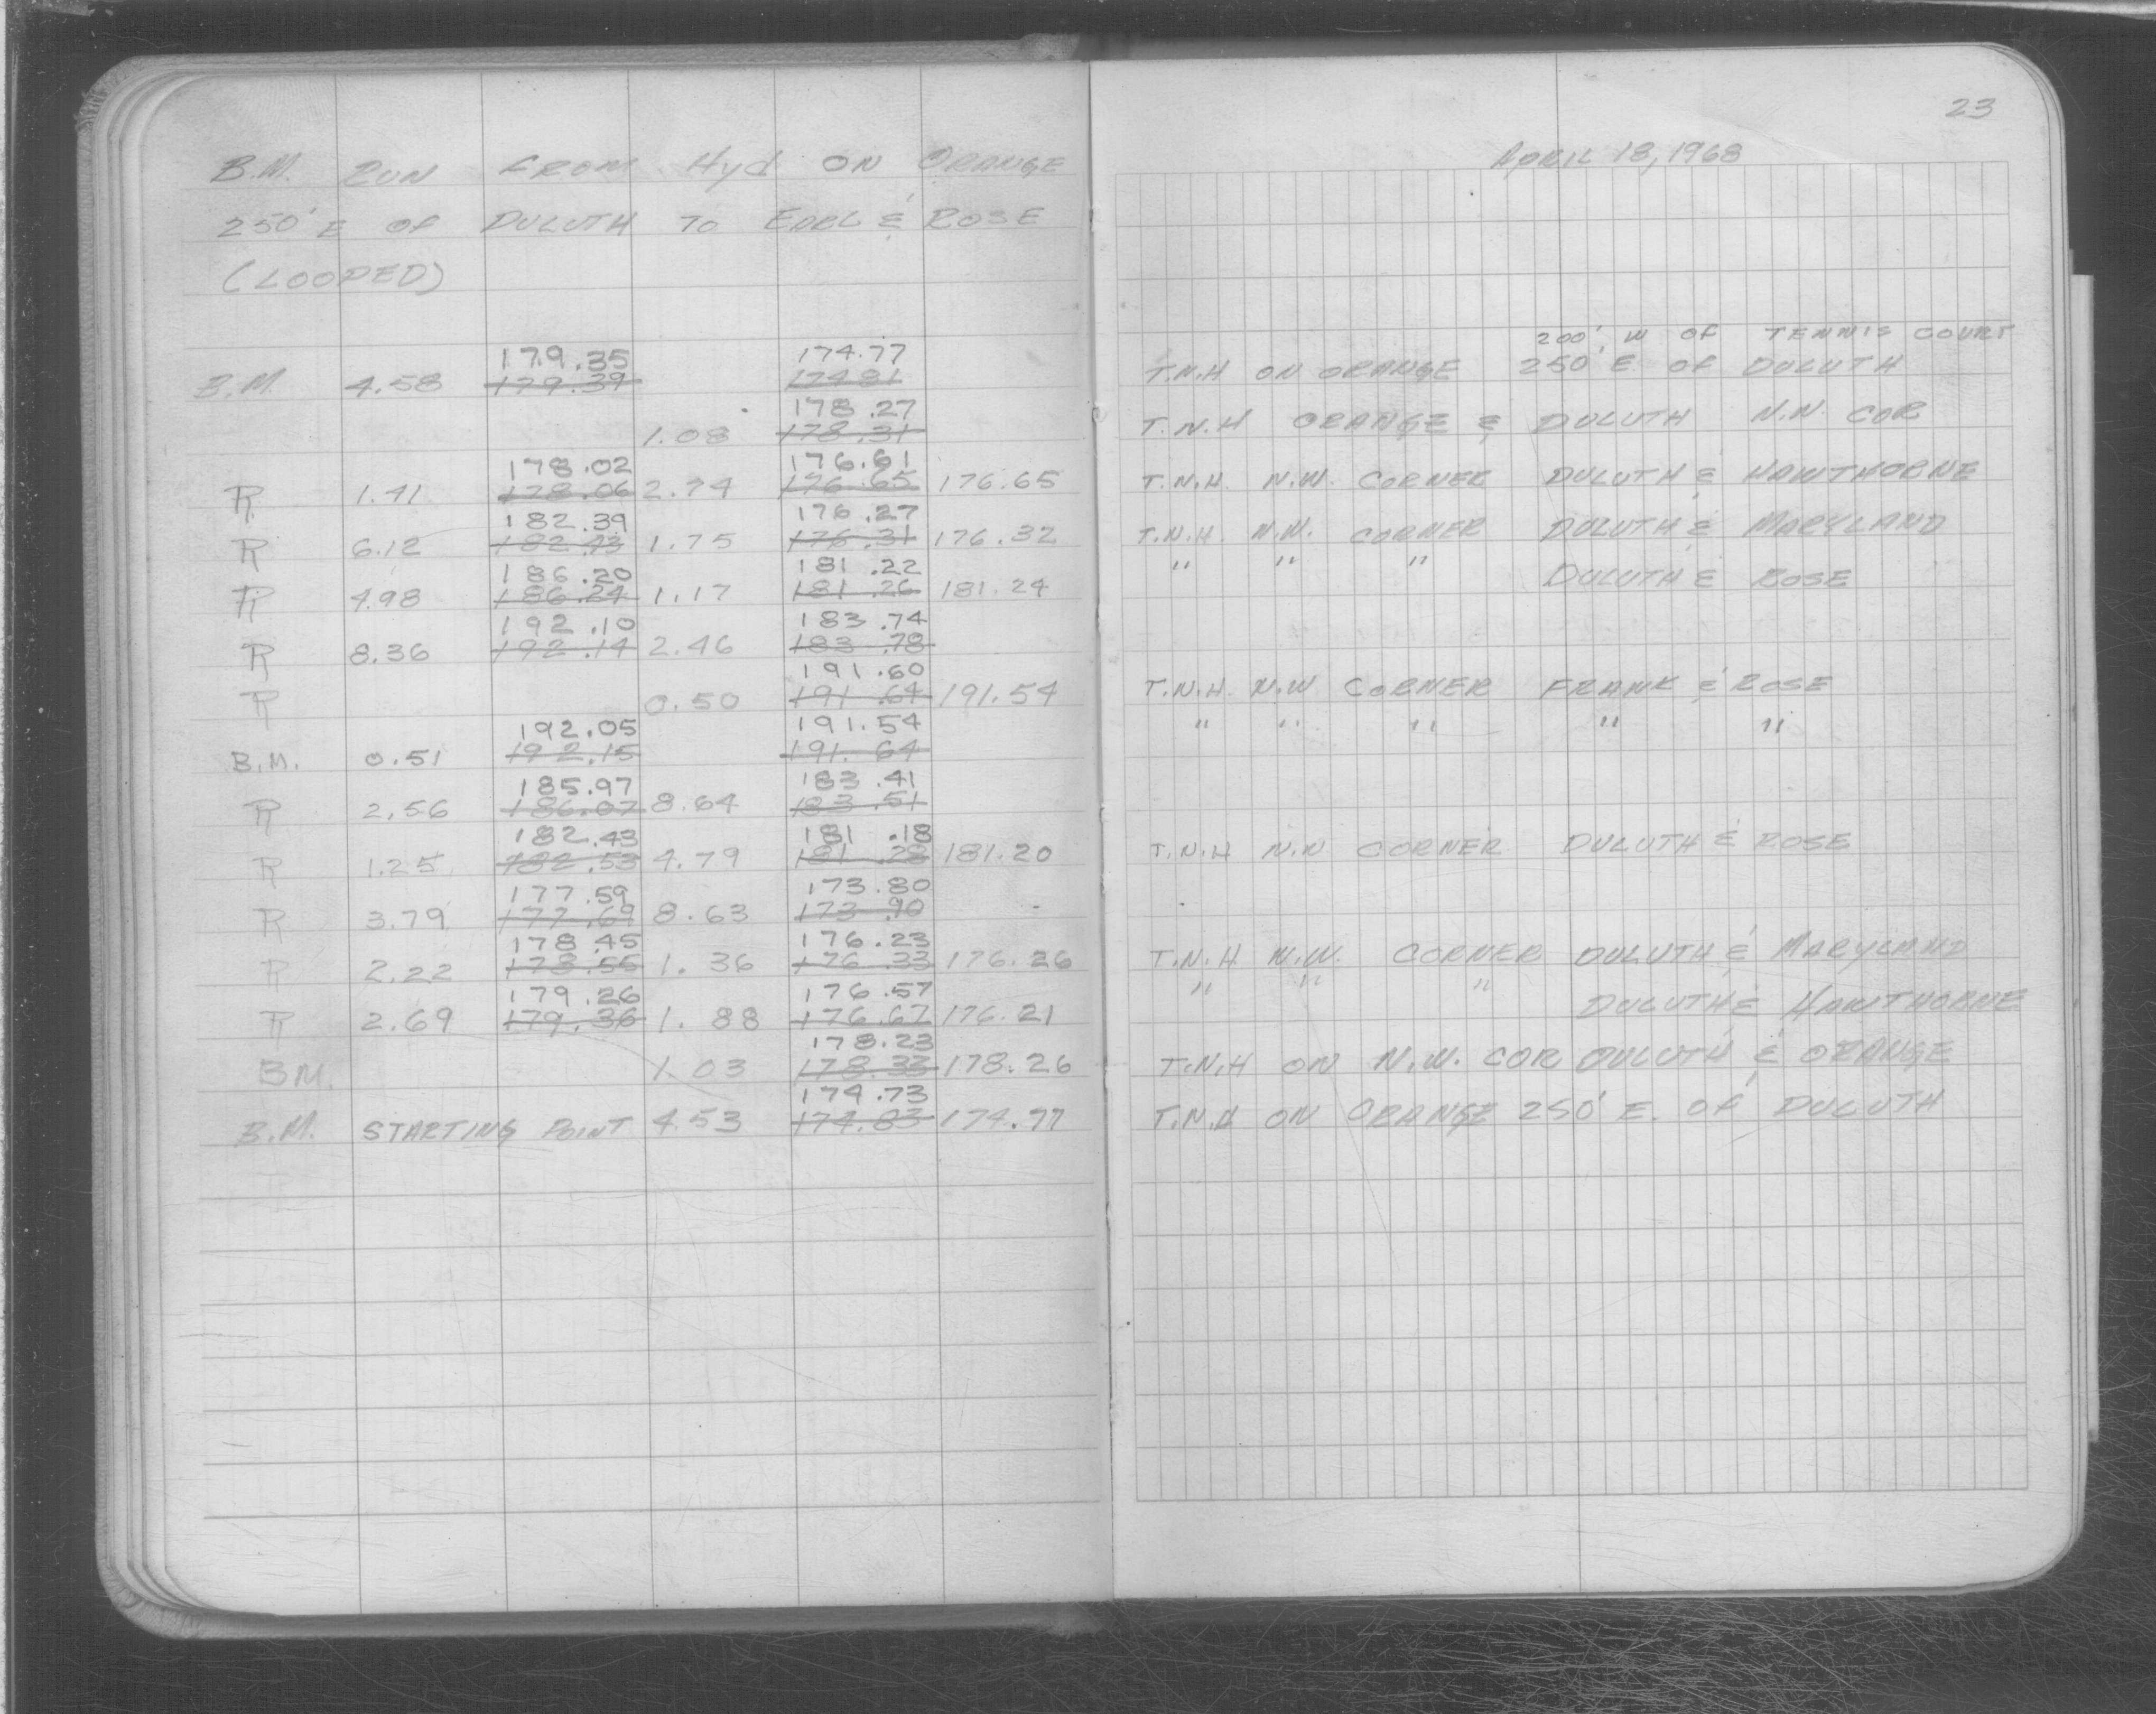 B.M. RUN FROM Hyd ON ORANGE
250' E OF DULUTH TO EARL & ROSE
(LOOPED)
179.35 174.77
B.M. 4.58 179.39 174.81
178.27
1.08 178.31
178.02 176.61
R 1.41 178.06 2.74 176.65 176.65
182.39 176.27
R 6.12 182.43 1.75 176.31 176.32
186.20 181.22
R 4.98 186.24 1.17 181.26 181.24
192.10 183.74
R 8.36 192.14 2.46 183.78
191.60
R 0.50 191.64 191.54
192.05 191.54
B.M. 0.51 192.15 191.64
185.97 183.41
R 2.56 186.07 8.64 183.51
182.43 181.18
R 1.25 182.53 4.79 181.28 181.20
177.59 173.80
R 3.79 177.69 8.63 173.90
178.45 176.23
R 2.22 178.55 1.36 176.33 176.26
179.26 176.57
R 2.69 179.36 1.88 176.67 176.21
178.23
BM. 1.03 178.33 178.26
174.73
B.M. STARTING POINT 4.53 174.83 174.77
23
APRIL 18, 1968
200' W OF TENNIS COURT
T.N.H ON ORANGE 250' E. OF DULUTH
T.N.H ORANGE & DULUTH N.W. COR
T.N.H. N.W. CORNER DULUTH & HAWTHORNE
T.N.H. N.W. CORNER DULUTH & MARYLAND
" " " DULUTH & ROSE
T.N.H. N.W CORNER FRANK & ROSE
" " " " "
T.N.H N.W CORNER DULUTH & ROSE
T.N.H N.W. CORNER DULUTH & MARYLAND
" " " DULUTH & HAWTHORNE
T.N.H ON N.W. COR DULUTH & ORANGE
T.N.H ON ORANGE 250' E. OF DULUTH